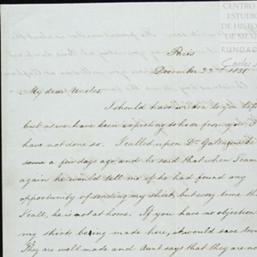 CENTRO
ESTUD
DE HISTOR
DE MEX
FUNDAC
Carlos
Paris
December 22nd 1838
My dear Uncles.
I should have written to you
but as we have been expecting to hear from you I
have not done so. I called upon Dr
some a few days ago and he said that when I came
again he would tell me if he had found any
opportunity of sending my shirts, but every time that
I call, he is not at home. If you have no objection
my shirts being made here, it would save
They are well made and Aunt says that they are no